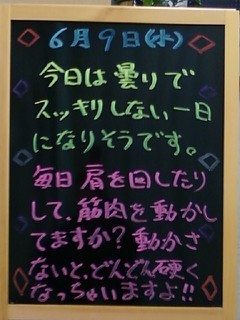 6月9日(水)
今日は曇りで
スッキリしない一日
になりそうです。
毎日肩を回したり
して、筋肉を動かし
てますか?動かさ
ないと、どんどん硬く
なっちゃいますよ!!